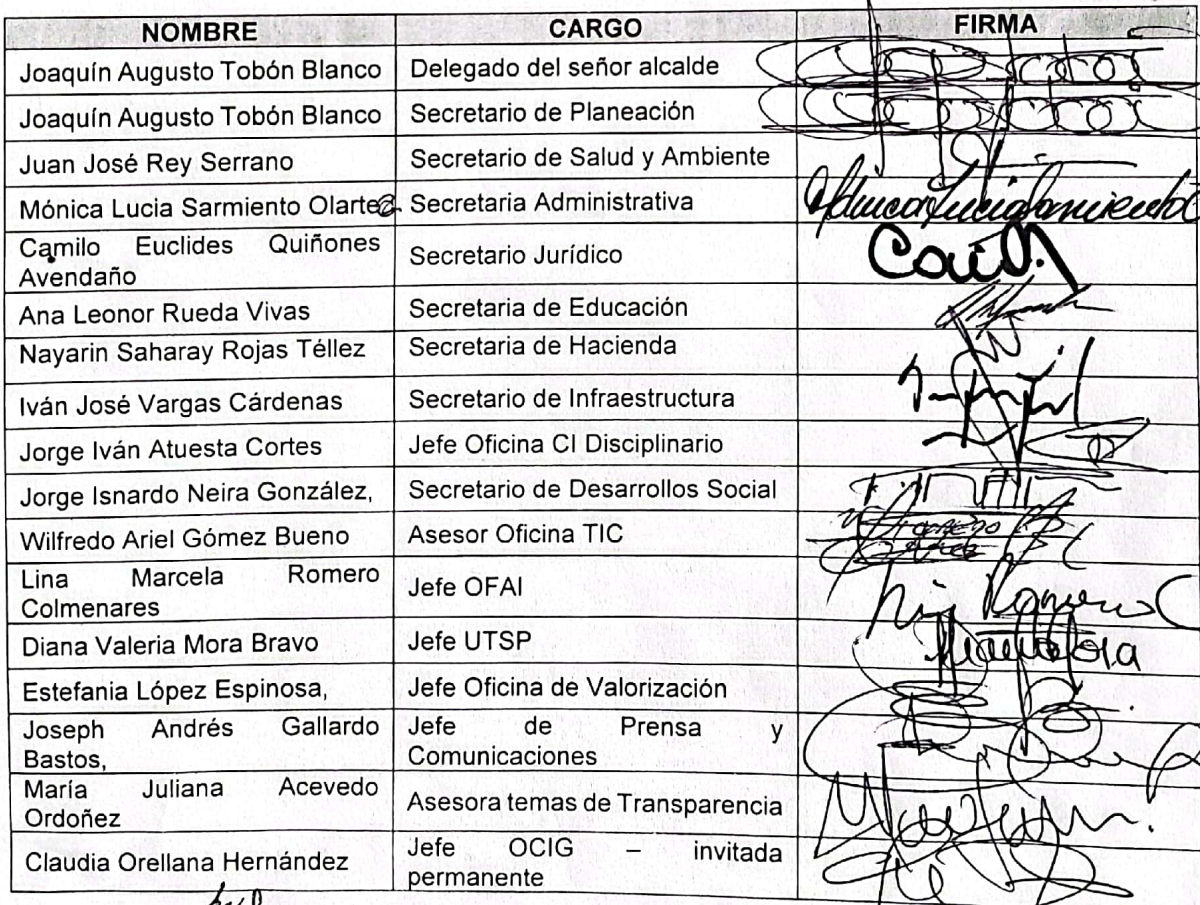 NOMBRE CARGO FIRMA
Joaquín Augusto Tobón Blanco Delegado del señor alcalde
Joaquín Augusto Tobón Blanco Secretario de Planeación
Juan José Rey Serrano Secretario de Salud y Ambiente
Mónica Lucia Sarmiento Olarte Secretaria Administrativa
Camilo Euclides Quiñones
Avendaño
Secretario Jurídico
Ana Leonor Rueda Vivas Secretaria de Educación
Nayarin Saharay Rojas Téllez Secretaria de Hacienda
Iván José Vargas Cárdenas Secretario de Infraestructura
Jorge Iván Atuesta Cortes Jefe Oficina CI Disciplinario
Jorge Isnardo Neira González, Secretario de Desarrollos Social
Wilfredo Ariel Gómez Bueno Asesor Oficina TIC
Lina Marcela Romero
Colmenares
Jefe OFAI
Diana Valeria Mora Bravo Jefe UTSP
Estefania López Espinosa, Jefe Oficina de Valorización
Joseph Andrés Gallardo
Bastos,
Jefe de Prensa y
Comunicaciones
María Juliana Acevedo
Ordoñez
Asesora temas de Transparencia
Claudia Orellana Hernández
Jefe OCIG – invitada
permanente